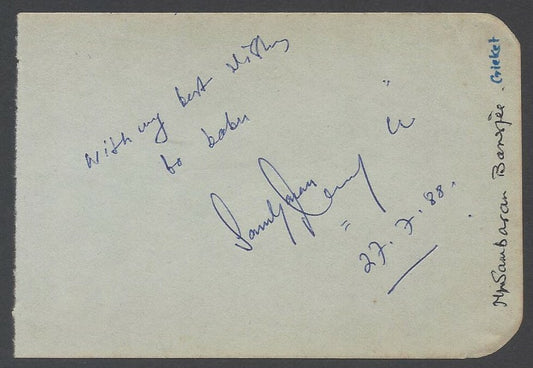 With my best wishes
to babu
27.7.88.
Mr Sambaran Banerjee. Cricket